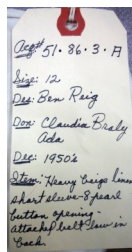 Acq# 51.86.3.A
Size: 12
Des: Ben Reig
Don: Claudia Braly
Ada
Dec: 1950's
Item: Heavy beige linen
short sleeve - 8 pearl
button opening -
attached belt sewn in
back.